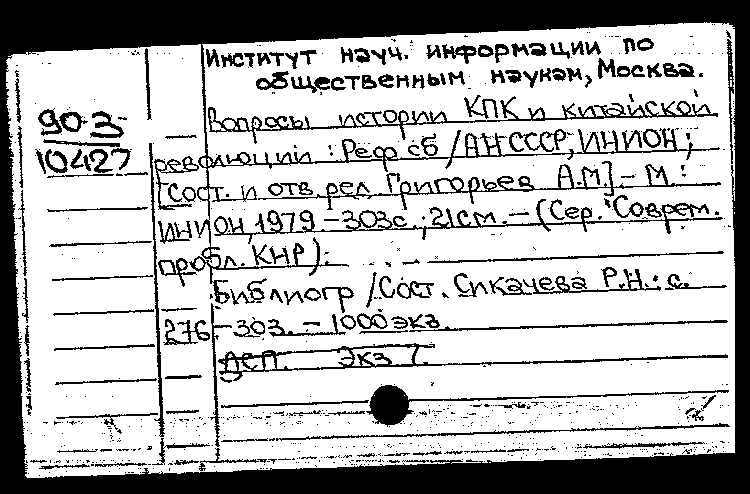 Институт науч. информации по
общественным наукам, Москва.
90-3
10427
Вопросы истории КПК и китайской
революции: Реф сб / АН СССР, ИНИОН;
[Сост. и отв. ред. Григорьев А.М.]. - М.:
ИНИОН, 1979. - 303с.; 21см. - (Сер. "Соврем.
пробл. КНР).
Библиогр / Сост. Сикачева Р.Н.: с.
276 - 303. - 1000 экз.
Деп. Экз 1.